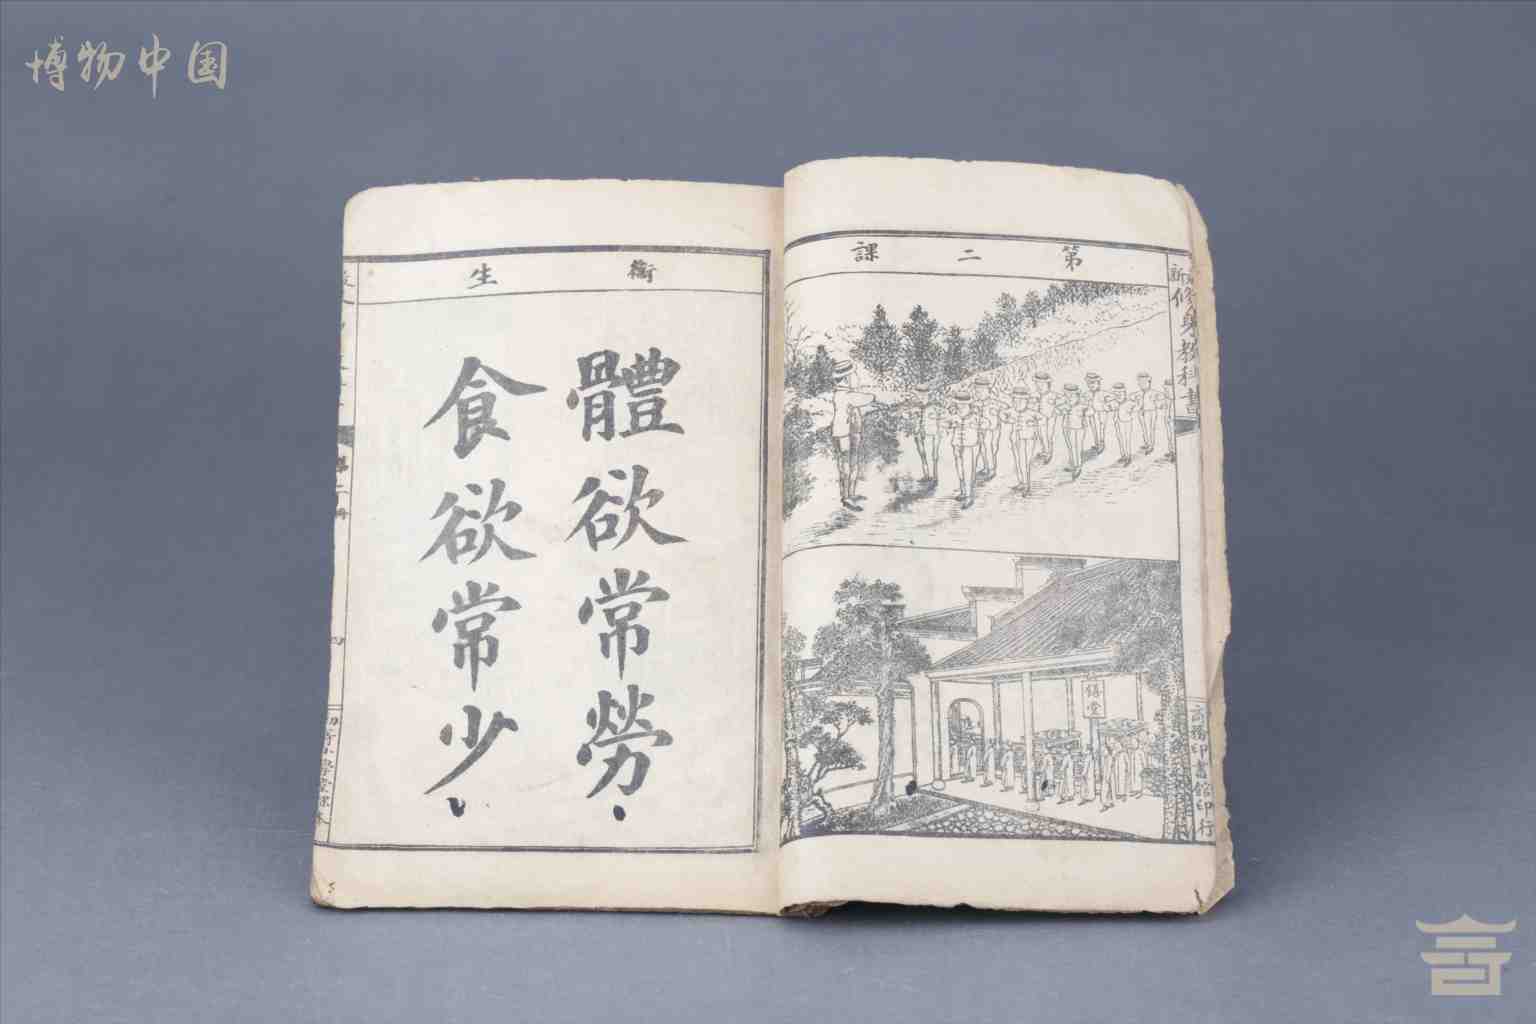 博物中国
第二課
新修身教科書
膳堂
商務印書館印行
衛生
體欲常勞
食欲常少
第二冊
四
初等小學堂課本